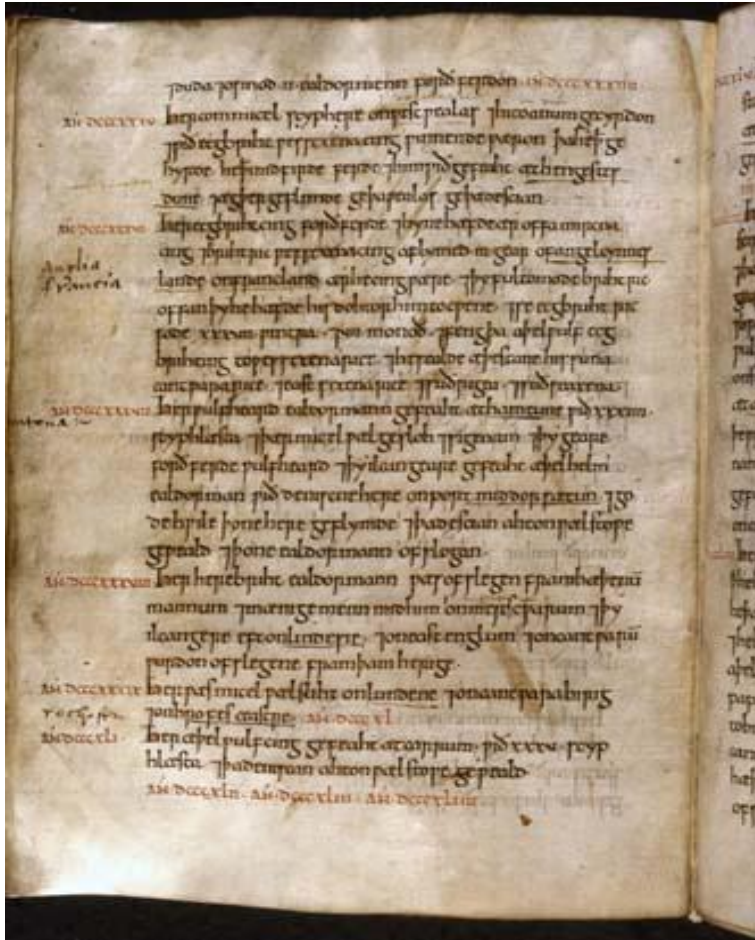 ⁊ duda ⁊ osmod .ii. ealdormenn forðferdon. AN. DCCCXXXIIII
AN. DCCCXXXV her com micel scyphere on ƿestƿealas ⁊ hi to anum gecyrdon
⁊ ƿið ecgbriht ƿesseaxena cing ƿinnende ƿæron. þa he þæt ge
hyrde. he þa mid firde ferde ⁊ him ƿið gefeaht æt hengestes
dune ⁊ ægþer geflymde ge þa ƿealas ge þa deniscan.
AN. DCCCXXXVI her ecgbriht cing forðferde ⁊ hyne hæfde ær offa mircna
cing ⁊ brihtric ƿesseaxena cing aflymed .iii. gear of angelcynnes
Anglia
francia
lande on francland ær he cing ƿære. ⁊ þy fultomode brihtric
offan þy he hæfde his dohtor him to cƿene. ⁊ se ecgbriht ric
sode .xxxvii. ƿintra. ⁊ .vii. monoð. ⁊ feng þa aþelƿulf ecg
brihting to ƿesseaxena rice. ⁊ he sealde æþelstane his suna
cantƿara rice. ⁊ eastseaxena rice. ⁊ suðrigea. ⁊ suðseaxena.
AN. DCCCXXXVII her ƿulfheard ealdormann gefeaht æt hamtune ƿið .xxxiii.
scyphlæsta. ⁊ þær micel ƿæl gesloh ⁊ sige nam. ⁊ þy geare
forðferde ƿulfheard ⁊ þy ilcan geare gefeaht æþelhelm
ealdorman ƿið deniscne here on port mid dorsætun. ⁊ go
de hƿile þone here geflymde ⁊ þa deniscan ahton ƿælstoƿe
geƿeald ⁊ þone ealdormann ofslogan.
AN. DCCCXXXVIII her herebriht ealdormann ƿæs ofslegen fram hæþenū
mannum ⁊ mænige menn mid him on merscƿarum ⁊ þy
ilcan gere eft on lindesse. ⁊ on eastenglum ⁊ on cantƿarū
ƿurdon ofslegene fram þam herige.
AN. DCCCXXXIX her ƿæs micel ƿælsliht on lundene ⁊ on cantƿara birig
⁊ on hrofes ceastre. AN. DCCCXL
AN. DCCCXLI her æþelƿulf cing gefeaht æt carrum. ƿið .xxxv. scyp
hlæsta. ⁊ þa deniscan ahton ƿælstoƿe geƿeald.
AN. DCCCXLII. AN. DCCCXLIII. AN. DCCCXLIIII